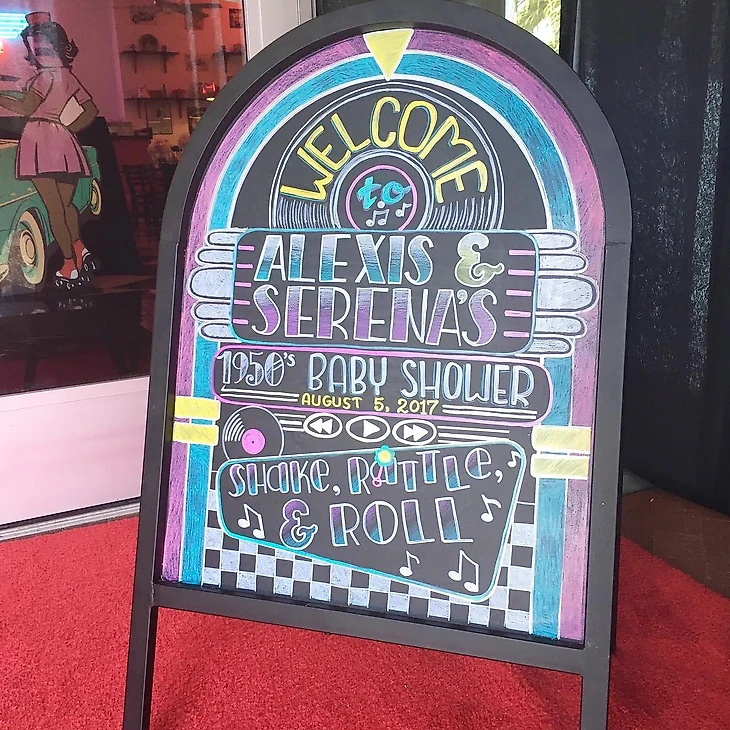 WELCOME
to
ALEXIS &
SERENA'S
1950's BABY SHOWER
AUGUST 5, 2017
SHAKE, RATTLE,
& ROLL